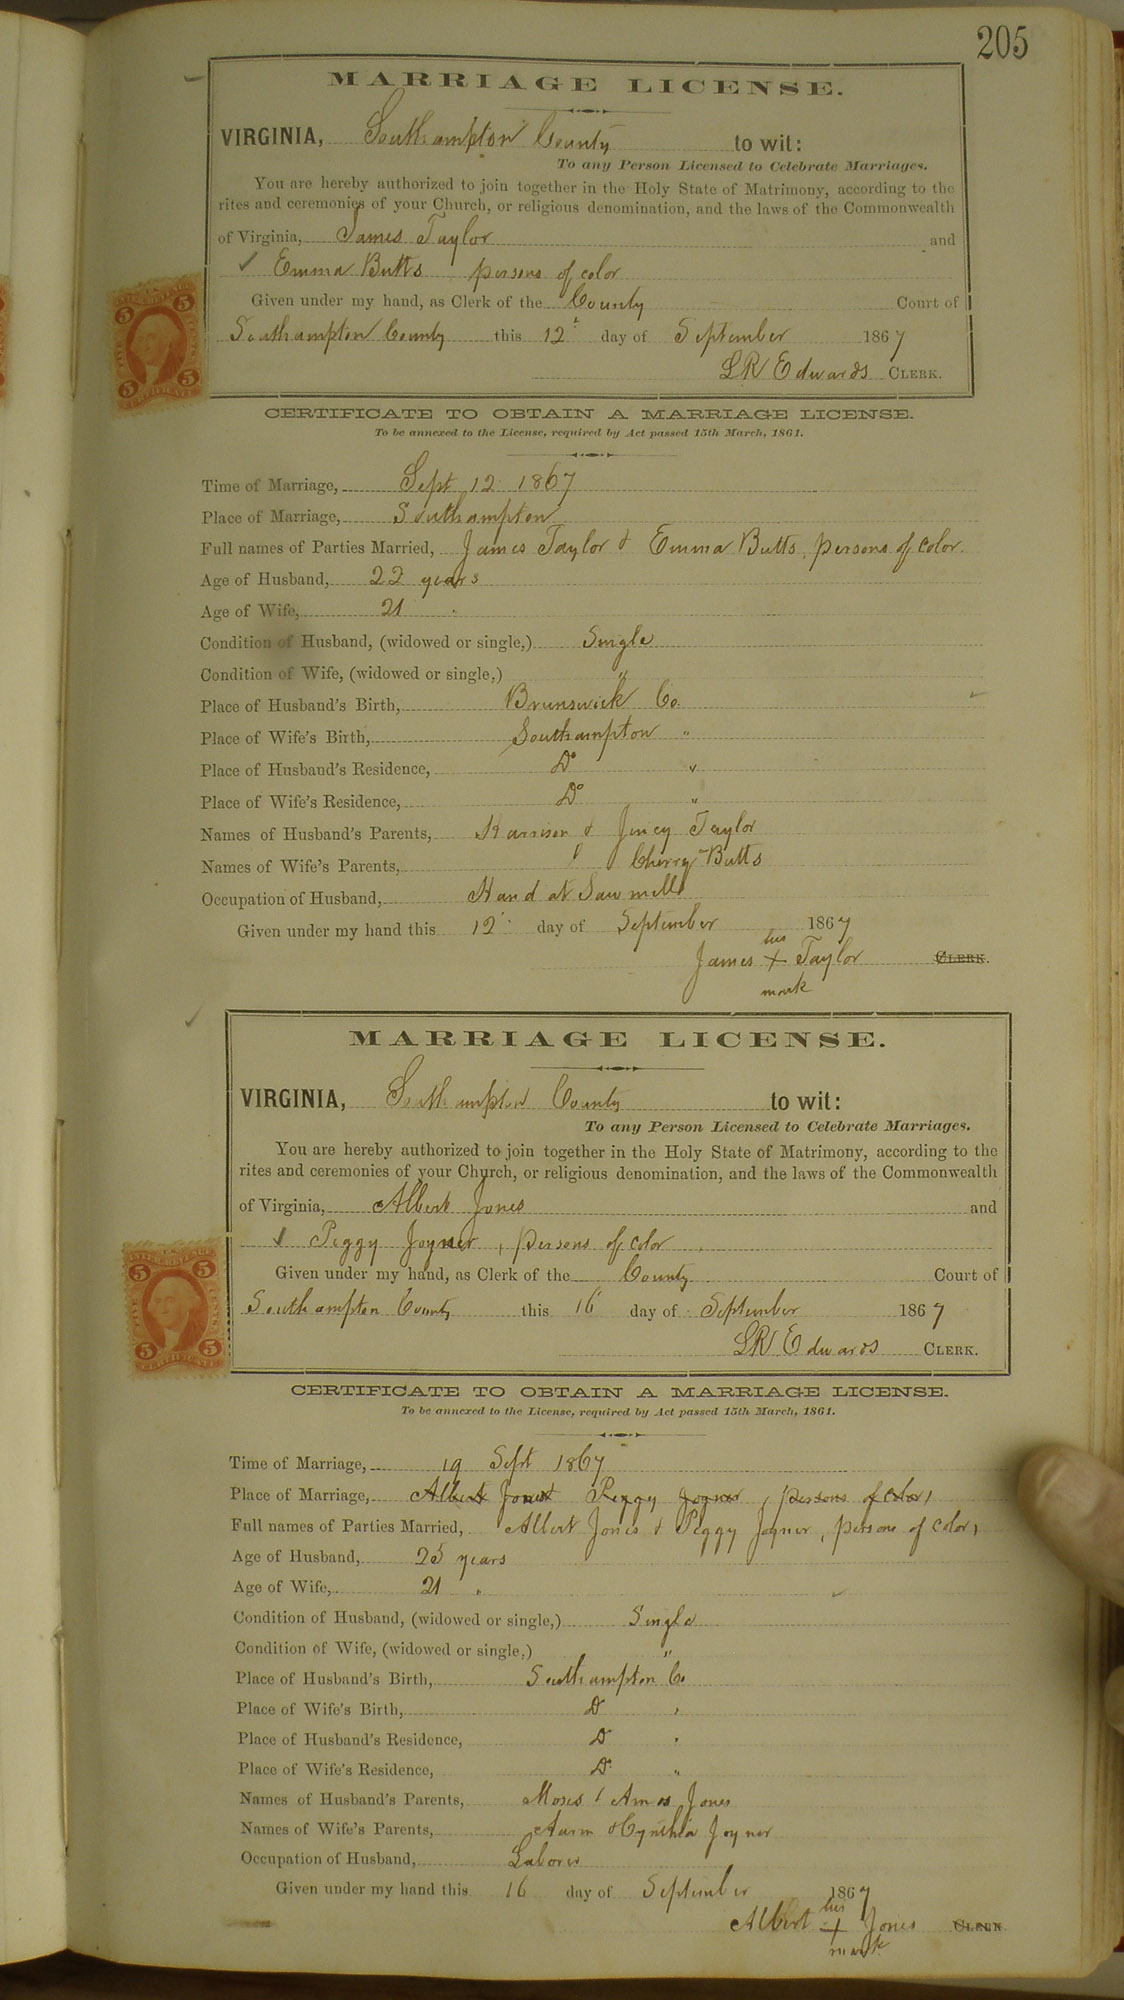 205
MARRIAGE LICENSE.
VIRGINIA, Southampton County to wit:
To any Person Licensed to Celebrate Marriages.
You are hereby authorized to join together in the Holy State of Matrimony, according to the
rites and ceremonies of your Church, or religious denomination, and the laws of the Commonwealth
of Virginia, James Taylor and
✓ Emma Butts persons of color
Given under my hand, as Clerk of the County Court of
Southampton County this 12 day of September 1867
LR Edwards CLERK.
CERTIFICATE TO OBTAIN A MARRIAGE LICENSE.
To be annexed to the License, required by Act passed 15th March, 1861.
Time of Marriage, Sept 12 1867
Place of Marriage, Southampton
Full names of Parties Married, James Taylor & Emma Butts, persons of color.
Age of Husband, 22 years
Age of Wife, 21 "
Condition of Husband, (widowed or single,) Single
Condition of Wife, (widowed or single,) "
Place of Husband's Birth, Brunswick Co.
Place of Wife's Birth, Southampton "
Place of Husband's Residence, Do "
Place of Wife's Residence, Do "
Names of Husband's Parents, Harrison & Jincy Taylor
Names of Wife's Parents, Cherry Butts
Occupation of Husband, Hand at Saw mill
Given under my hand this 12 day of September 1867
his
James + Taylor CLERK.
mark
MARRIAGE LICENSE.
VIRGINIA, Southampton County to wit:
To any Person Licensed to Celebrate Marriages.
You are hereby authorized to join together in the Holy State of Matrimony, according to the
rites and ceremonies of your Church, or religious denomination, and the laws of the Commonwealth
of Virginia, Albert Jones and
✓ Peggy Joyner, persons of color,
Given under my hand, as Clerk of the County Court of
Southampton County this 16 day of September 1867
LR Edwards CLERK.
CERTIFICATE TO OBTAIN A MARRIAGE LICENSE.
To be annexed to the License, required by Act passed 15th March, 1861.
Time of Marriage, 19 Sept 1867
Place of Marriage, Albert Jones Peggy Joyner, persons of color,
Full names of Parties Married, Albert Jones & Peggy Joyner, persons of color,
Age of Husband, 25 years
Age of Wife, 21 "
Condition of Husband, (widowed or single,) Single
Condition of Wife, (widowed or single,) "
Place of Husband's Birth, Southampton Co
Place of Wife's Birth, Do "
Place of Husband's Residence, Do "
Place of Wife's Residence, Do "
Names of Husband's Parents, Moses & Jones
Names of Wife's Parents, & Cynthia Joyner
Occupation of Husband, Laborer
Given under my hand this 16 day of September 1867
his
Albert + Jones CLERK.
mark